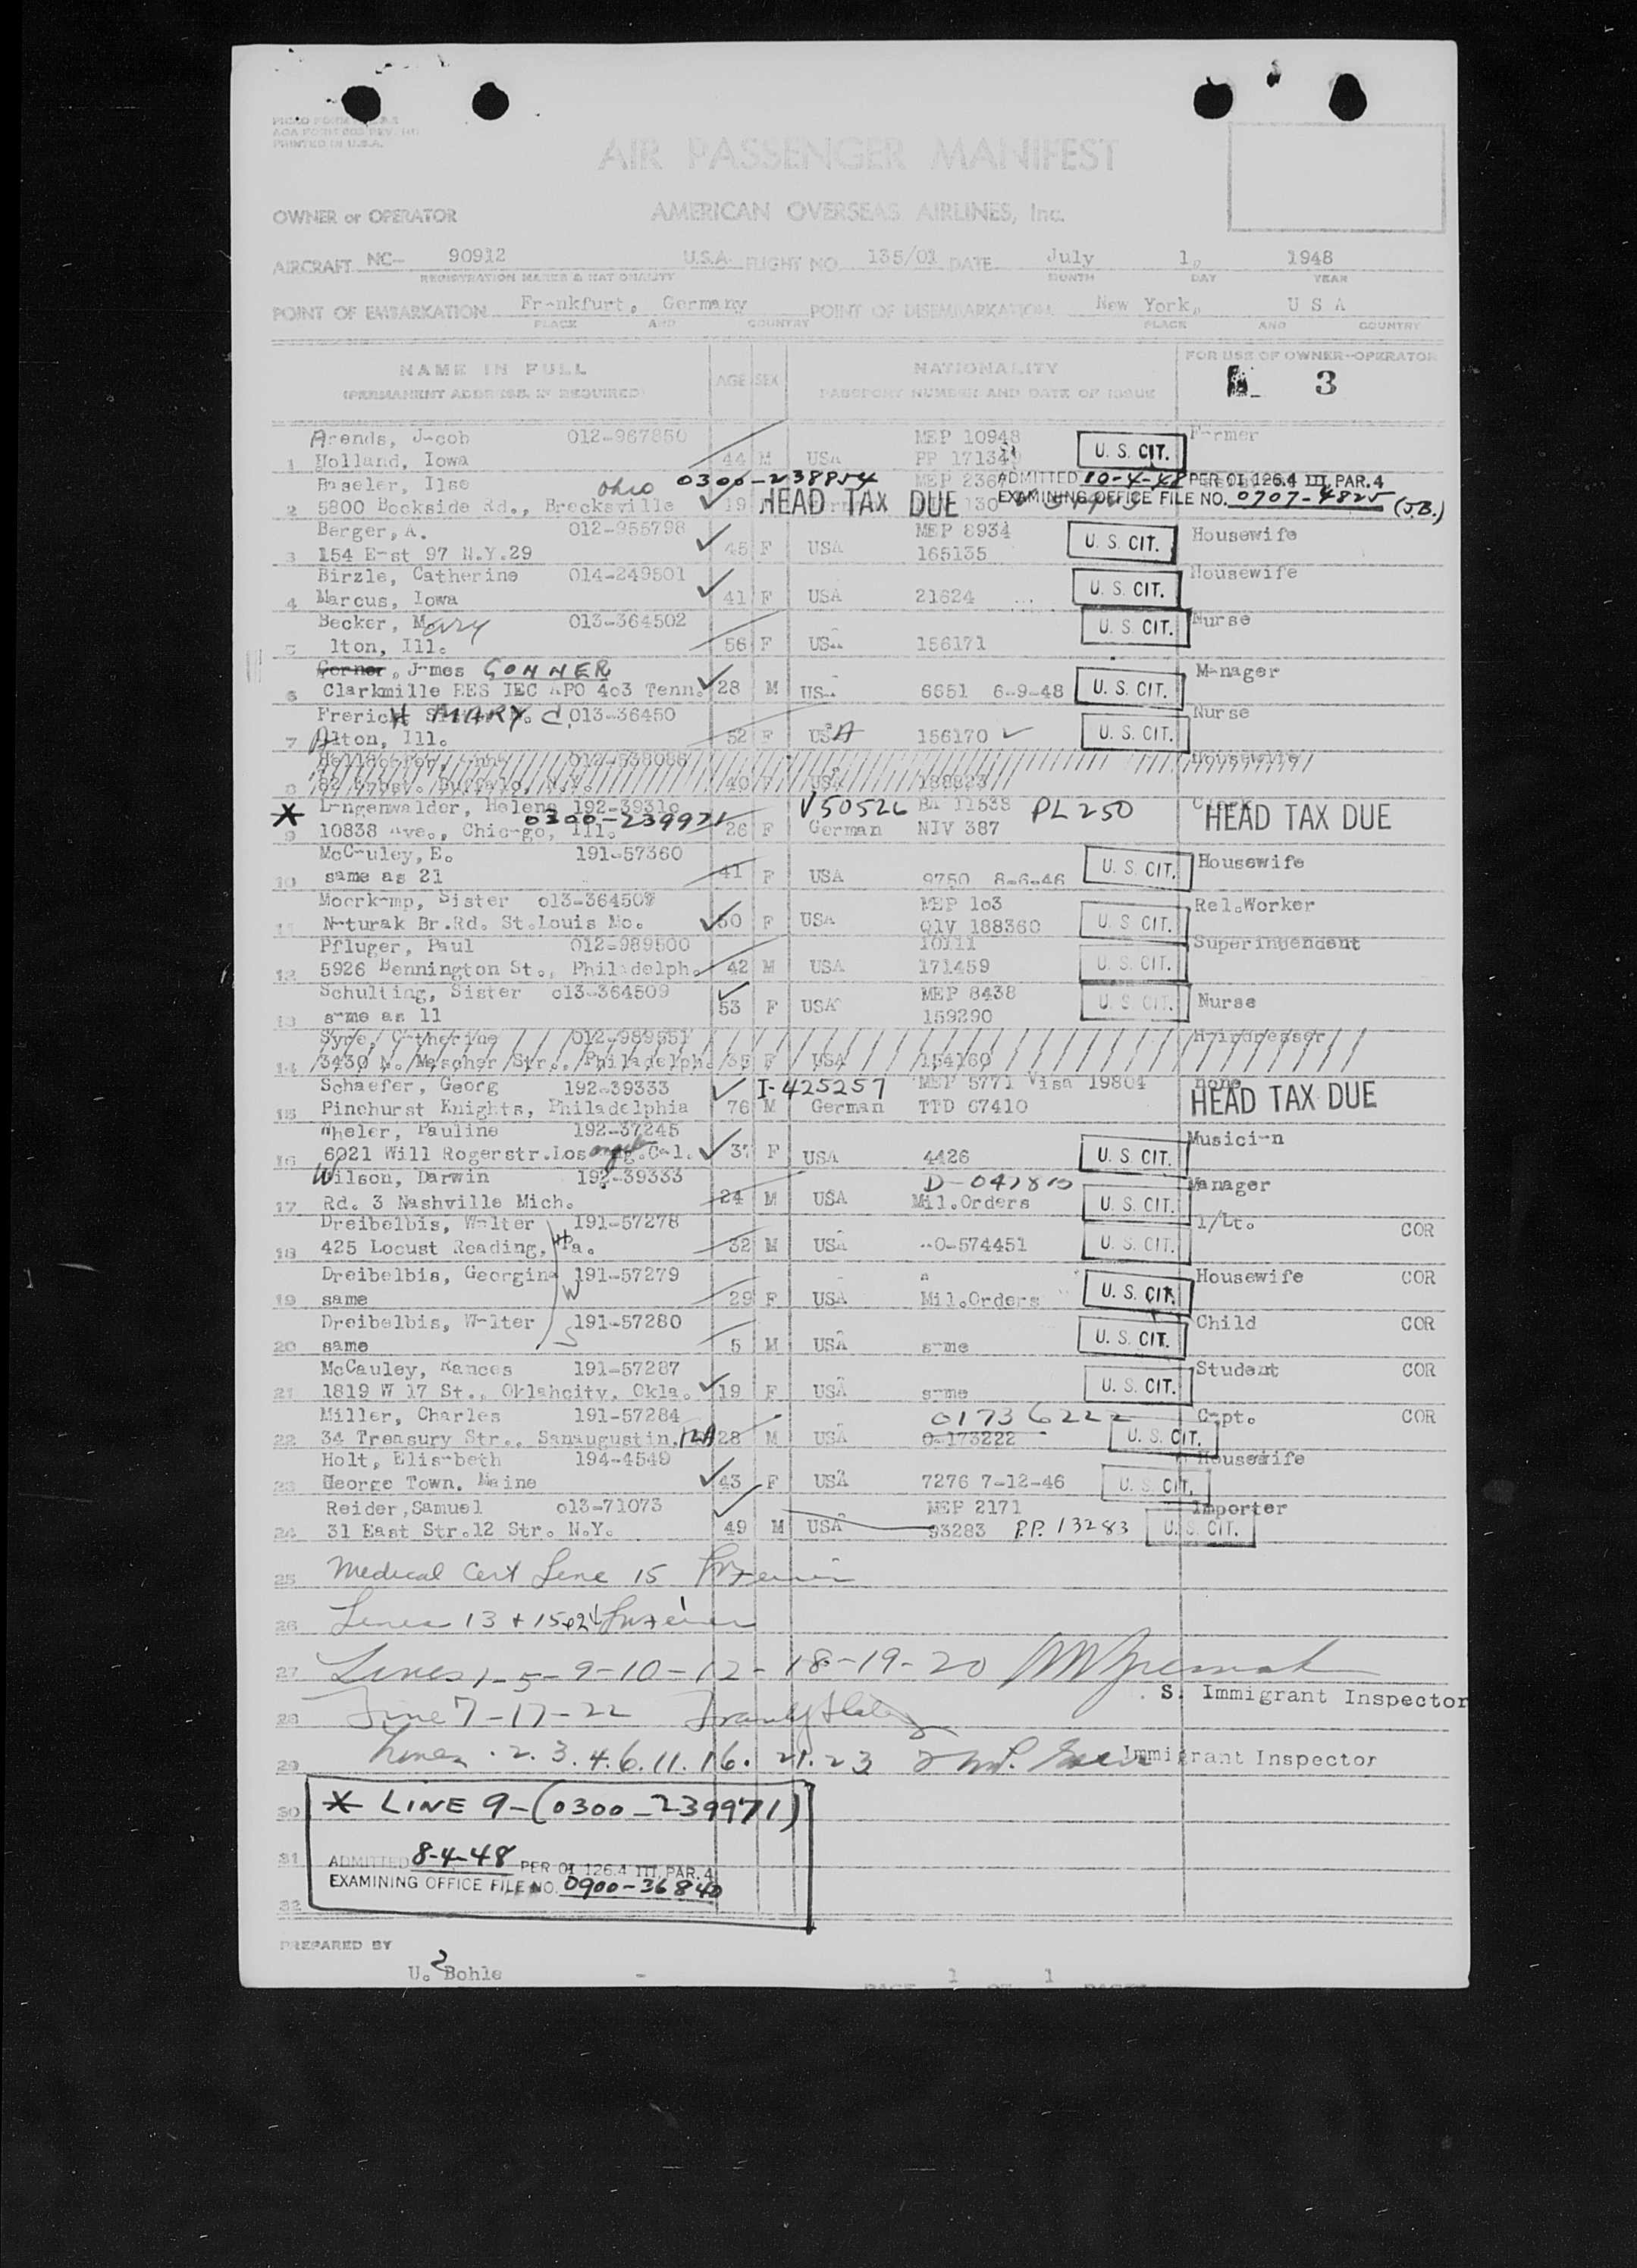 PRINTED IN U.S.A.
AIR PASSENGER MANIFEST
OWNER or OPERATOR AMERICAN OVERSEAS AIRLINES, Inc.
AIRCRAFT NC- 90912 U.S.A. FLIGHT NO. 135/01 DATE July 1, 1948
REGISTRATION MARKS & NATIONALITY MONTH DAY YEAR
POINT OF EMBARKATION Fr-nkfurt, Germany POINT OF DISEMBARKATION New York, U S A
PLACE AND COUNTRY PLACE AND COUNTRY
NAME IN FULL AGE SEX NATIONALITY FOR USE OF OWNER-OPERATOR
(PERMANENT ADDRESS, IF REQUIRED) PASSPORT NUMBER AND DATE OF ISSUE 3
Arends, J-cob 012-967850 MEP 10948 F-rmer
1 Holland, Iowa 44 M USA PP U. S. CIT.
Baseler, Ilse Ohio 0300-238854 ADMITTED 10-4-48 PER OI 126.4 III, PAR. 4
2 5800 Bookside Rd., Brecksville 19 HEAD TAX DUE EXAMINING OFFICE FILE NO. 0707-4825 (J.B.)
Berger, A. 012-955798 MEP 8934 Housewife
3 154 E-st 97 N.Y.29 45 F USA 165135 U. S. CIT.
Birzle, Catherine 014-249501 Housewife
4 Marcus, Iowa 41 F USA 21624 U. S. CIT.
Becker, Mary 013-364502 Nurse
5 lton, Ill. 56 F US 156171 U. S. CIT.
Gerner, J-mes GONNER M-nager
6 Clarkmille RES IEC APO 4o3 Tenn. 28 M US 6651 6-9-48 U. S. CIT.
Frerich MARY C. 013-36450 Nurse
7 Alton, Ill. 52 F USA 156170 U. S. CIT.
012-538086 Housewife
8 Buffalo, N.Y. 40 F USA 188823
* L-ngenwalder, Helene 192-39310 V50526 11538 PL 250
0300-239971 HEAD TAX DUE
9 10838 Ave., Chic-go, Ill. 26 F German NIV 387
McC-uley, E. 191-57360 Housewife
10 same as 21 41 F USA 9750 8-6-46 U. S. CIT.
Moerk-mp, Sister o13-364507 MEP 1o3 Rel.Worker
11 N-turak Br.Rd. St.Louis Mo. 50 F USA QIV 188360 U. S. CIT.
Pfluger, Paul 012-989500 10111 Superintendent
12 5926 Bennington St., Philadelph. 42 M USA 171459 U. S. CIT.
Schulting, Sister o13-364509 MEP 8438 Nurse
13 s-me as 11 53 F USA 159290 U. S. CIT.
Syre, C-therine 012-989551 H-irdresser
14 3430 N. Mascher Str., Philadelph. 35 F USA 154160
Schaefer, Georg 192-39333 I-425257 MEP 5771 Visa 19804 none
15 Pinehurst Knights, Philadelphia 76 M German TTD 67410 HEAD TAX DUE
Wheler, Pauline 192-37245 Music-n
16 6021 Will Rogerstr.Los Ang.C-l. 37 F USA 4426 U. S. CIT.
Wilson, Darwin 192-39333 D-042810 Manager
17 Rd. 3 Nashville Mich. 24 M USA Mil.Orders U. S. CIT.
Dreibelbis, W-lter 191-57278 1/Lt. COR
18 425 Locust Reading, Pa. H 32 M USA -0-574451 U. S. CIT.
Dreibelbis, Georgina 191-57279 Housewife COR
19 same W 29 F USA Mil.Orders U. S. CIT.
Dreibelbis, W-lter 191-57280 Child COR
20 same S 5 M USA s-me U. S. CIT.
McCauley, Rances 191-57287 Student COR
21 1819 W 17 St., Oklahcity, Okla. 19 F USA s-me U. S. CIT.
Miller, Charles 191-57284 01736222 C-pt. COR
22 34 Treasury Str., Sanaugustin, 28 M USA 0-173222 U. S. CIT.
Holt, Elis-beth 194-4549 Housewife
23 George Town, Maine 43 F USA 7276 7-12-46 U. S. CIT.
Reider,Samuel o13-71073 MEP 2171 Importer
24 31 East Str.12 Str. N.Y. 49 M USA 93283 P.P. 13283 U. S. CIT.
25 Medical Cert Line 15
26 Lines 13 + 15
27 Lines 1-5-9-10-12-18-19-20
S. Immigrant Inspector
28 Line 7-17-22
29 Lines 2.3.4.6.11.16.21.23 Immigrant Inspector
30 * LINE 9-(0300-239971)
31 ADMITTED 8-4-48 PER OI 126.4 III, PAR. 4
EXAMINING OFFICE FILE NO. 0900-36840
32
PREPARED BY
U. Bohle
PAGE 1 OF 1 PAGES